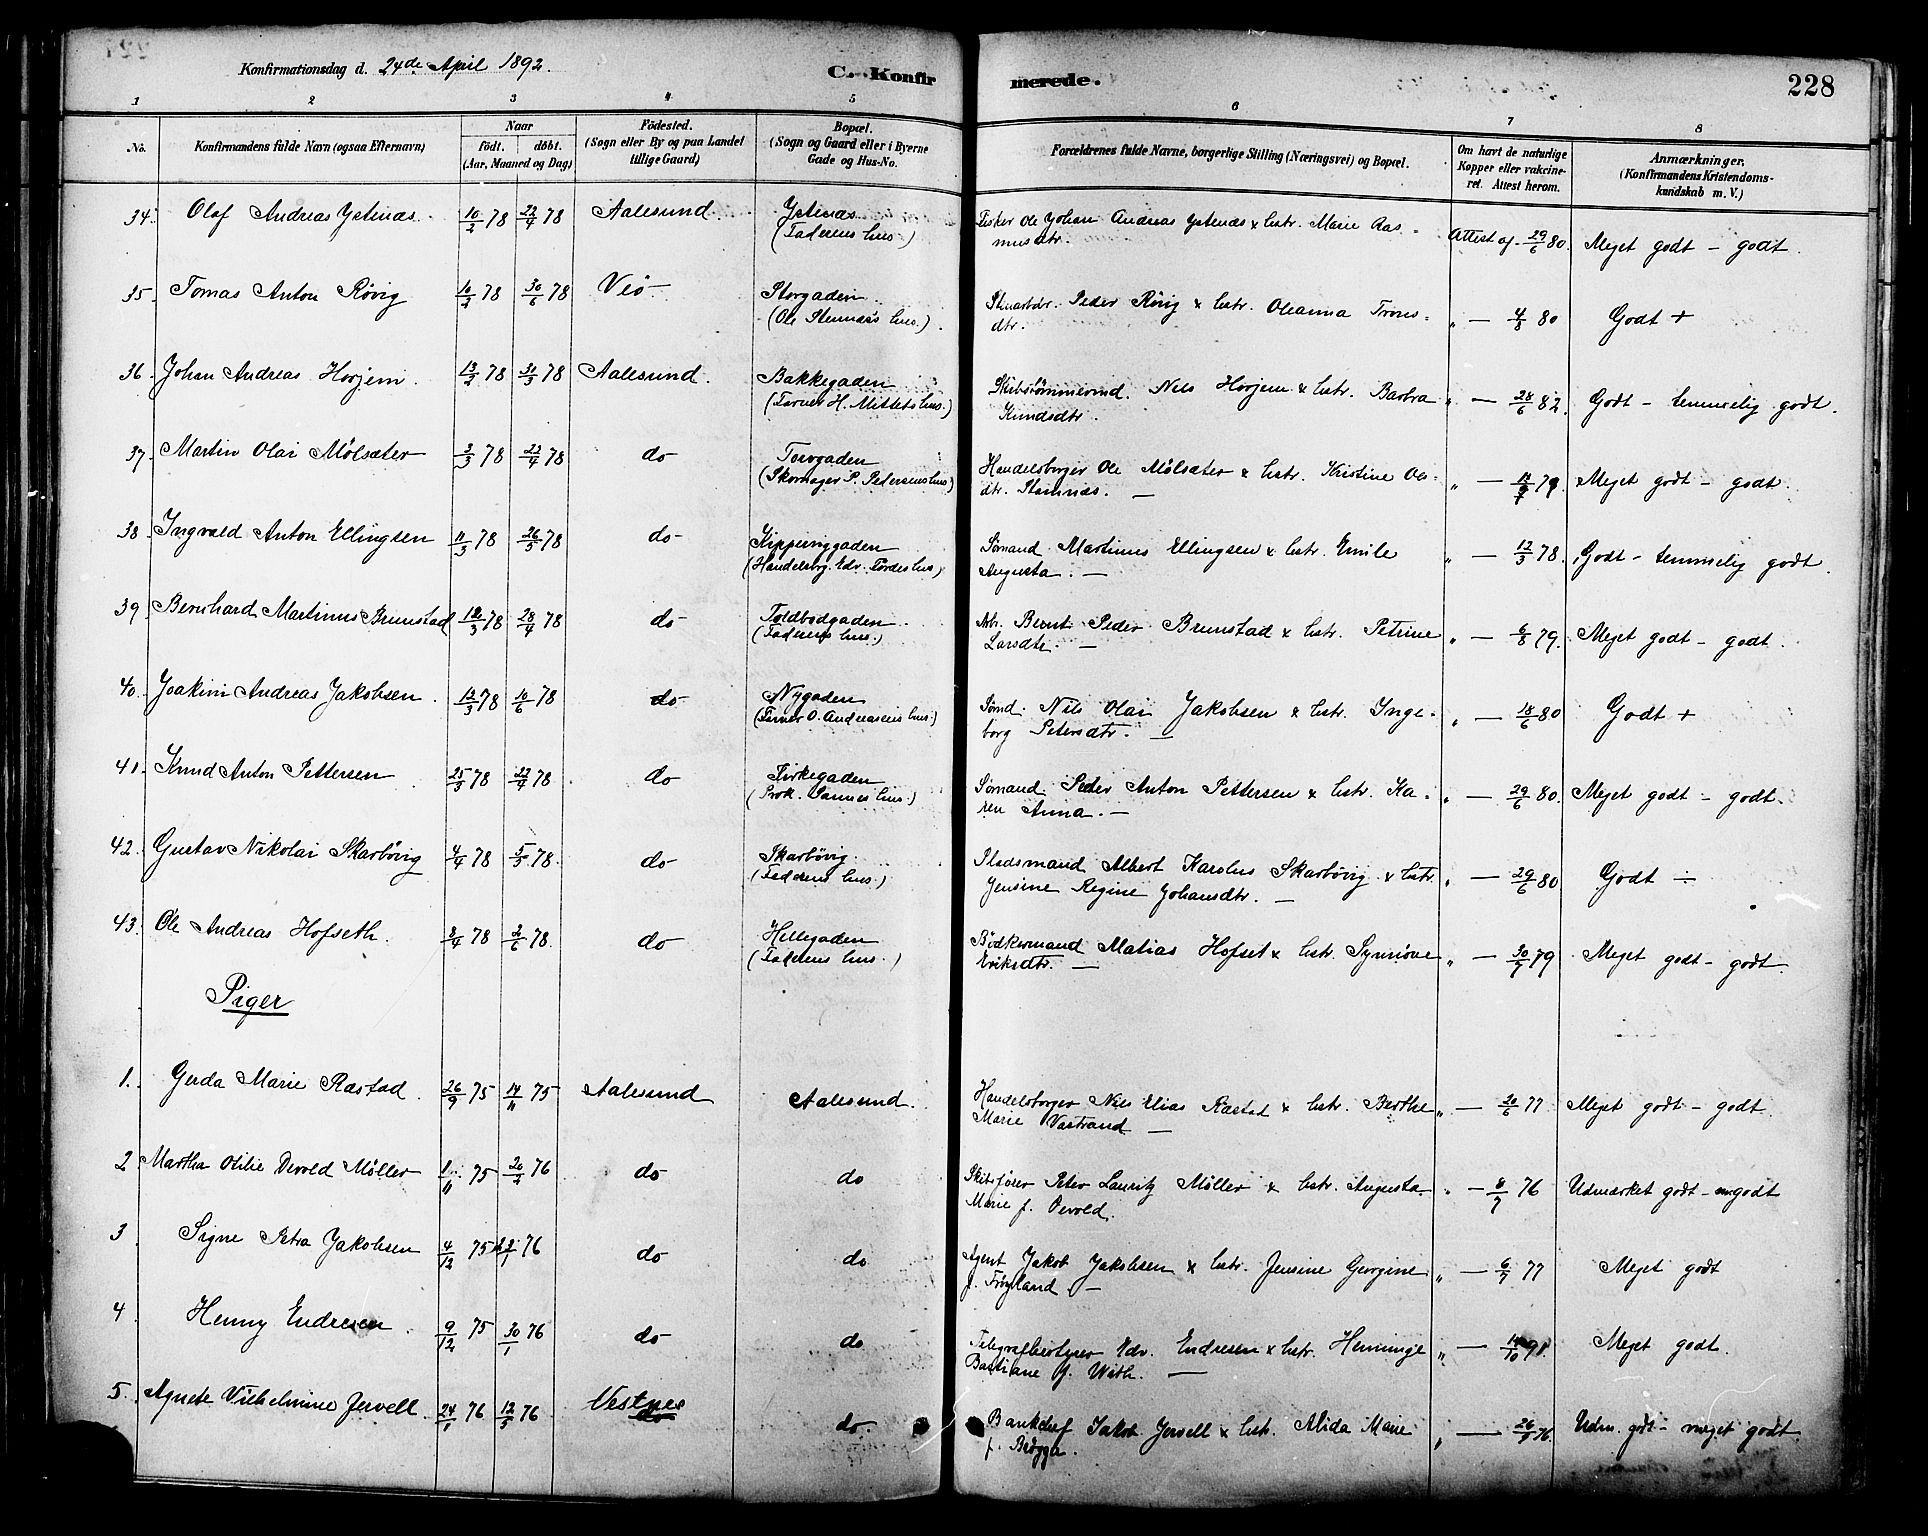 Konfirmationsdag d. 24de April 1892.
C. Konfirmerede.
228
1 2 3 4 5 6 7 8
No. Konfirmandens fulde Navn (ogsaa Efternavn) Naar født. døbt. (Aar, Maaned og Dag) Fødested. (Sogn eller By og paa Landet tillige Gaard) Bopæl. (Sogn og Gaard eller i Byerne Gade og Hus-No. Forældrenes fulde Navne, borgerlige Stilling (Næringsvei) og Bopæl. Om havt de naturlige Kopper eller vakcineret. Attest herom. Anmærkninger. (Konfirmandens Kristendomskundskab m. V.)
34. Olaf Andreas Ystenæs. 10/2 78 22/4 78 Aalesund Ystenæs
(Faderens hus.) Fisker Ole Johan Andreas Ystenæs & hstr. Marie Ras-
musdtr. Attest af 29/6 80. Meget godt - godt.
35. Tomas Anton Røvig 10/2 78 30/6 78 Veö Storgaden
(Ole Stennæs's hus.) Peder Røvig & hstr. Oleanna Trons-
dtr. " — 4/8 80 Godt +
36. Johan Andreas Horjem. 13/2 78 31/3 78 Aalesund. Bakkegaden
(Farver H. Mittets hus.) Skibstømmermd. Nils Horjem & hstr. Barbra
Knudsdtr. " — 28/6 82. Godt - temmelig godt.
37. Martin Olai Mølsæter 3/3 78 22/4 78 do Torvgaden
(Skomager P. Pedersens hus) Handelsborger Ole Mølsæter & hstr. Kristine Ols-
dtr. Stennæs. — " — 79. Meget godt - godt.
38. Ingvald Anton Ellingsen 11/3 78 26/5 78 do Kipperviggaden
(Handelsbg. Edv. Førdes hus) Sømand Martinus Ellingsen & hstr. Emile
Augusta. — " — 12/3 78. Godt - temmelig godt.
39. Bernhard Martinus Brunstad 12/3 78 28/4 78 do Toldbodgaden
(Faderens hus.) Arb. Bernt Peder Brunstad & hstr. Petrine
Larsdtr. — " — 6/8 79. Meget godt - godt.
40. Joakim Andreas Jakobsen. 12/3 78 10/6 78 do Nygaden
(Farver O. Andreasens hus.) Sømd. Nils Olai Jakobsen & hstr. Inge-
borg Petersdtr. — " — 18/6 80 Godt +
41. Knud Anton Pettersen 25/3 78 22/4 78 do Kirkegaden
(Prok. Sannes hus.) Sømand Peder Anton Pettersen & hstr. Ka-
ren Anna. — " — 29/6 80. Meget godt - godt.
42. Gustav Nikolai Skarbövig 4/4 78 5/5 78. do Skarbövig.
(Faderens hus.) Pladsmand Albert Karolus Skarbövig & hstr.
Jensine Regine Johansdtr. — " — 29/6 80 Godt ÷
43. Ole Andreas Hofseth. 8/4 78 2/6 78. do Hellegaden
(Faderens hus.) Bødkermand Matias Hofset & hstr. Synnöve
Eriksdtr. — " — 30/7 79 Meget godt - godt.
Piger
1. Gerda Marie Rastad. 26/9 75 14/11 75 Aalesund Aalesund. Handelsborger Nils Elias Rastad & hstr. Berthe
Marie Vastrand — " — 20/6 77 Meget godt - godt.
2 Martha Otilie Devold Møller 1/11 75 20/2 76 do do Skibsfører Peter Lauritz Møller & hstr. Augusta
Marie f. Devold. " — 8/7 76 Udmærket godt - mgodt
3 Signe Petra Jakobsen 4/12 75 76 do do Agent Jakob Jakobsen & hstr. Jensine Georgine
f. Fröyland. — " — 6/7 77 Meget godt
4 Henny Endresen. 9/12 75 30/1 76 do do Telegrafbestyrer Edv. Endresen & hstr. Henninge
Bastiane f. With. — " — 14/10 91. Meget godt.
5. Agnete Vilhelmine Jervell. 24/1 76 12/3 76 Vestnes
do do Bankchef Jakob Jervell & hstr. Alida Marie
f. Brögger. " — 26/9 76. Udm. godt - meget godt.